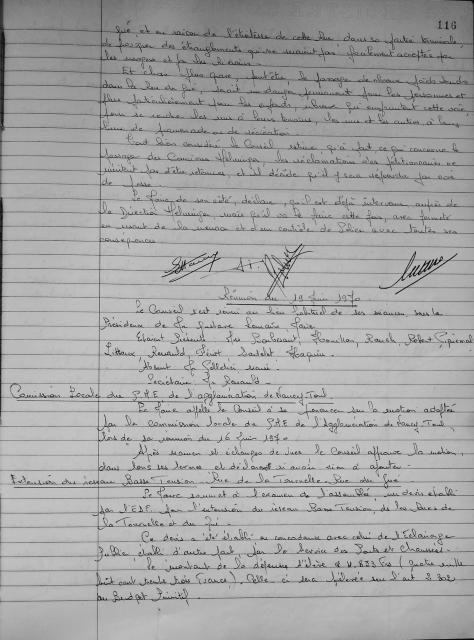 116
fué, et en raison de l'étroitesse de cette Rue dans sa partie terminale,
de provoquer des étranglements qui ne seraient pas facilement acceptés par
les usagers et par les riverains.
Et chose plus grave, peut être, le passage de chaque poids lourds
dans la Rue du fué, serait un danger permanent pour les personnes et
plus particulièrement pour les enfants, élèves qui empruntent cette voie
pour se rendre les uns à leurs travaux, les uns et les autres à leurs
lieux de promenades ou de récréation.
Tout bien considéré le Conseil estime qu'à fait ce qui concerne le
passage des Camions, les réclamations des pétitionnaires ne
méritent pas d'être retenues, et il décide qu'il y sera répondu par voie
de presse.
Le Maire de son côté, déclare, qu'il est déjà intervenu auprès de
la Direction mais qu'il va le faire cette fois, avec fermeté
en usant de la menace et d'un contrôle de Police avec toutes ses
conséquences.
Réunion du 19 Juin 1970
Le Conseil s'est réuni au lieu habituel de ses séances, sous la
Présidence de Mr Gustave Romain Maire.
Etaient Présents Mrs Robert
Renauld
Absent Mr excusé
Secrétaire Mr Renauld
Commission Locale du P.A.E de l'agglomération de Nancy-Toul
Le Maire appelle le Conseil à se prononcer sur la motion adoptée
par la Commission locale de P.A.E de l'Agglomération de Nancy-Toul,
lors de sa réunion du 16 Juin 1970
Après examen et échanges de vues le Conseil approuve la motion,
dans tous ses termes et déclare n'avoir rien à ajouter.
Extension du réseau Basse Tension Rue de la Tournelle Rue du fué
Le Maire soumet à l'examen de l'assemblée, un devis établi
par l'E.D.F. pour l'extension du réseau Basse Tension, des les Rues de
la Tournelle et du fué.
Ce devis a été établi en concordance avec celui de l'Eclairage
Public établi d'autre part, par le Service des Ponts et Chaussées.
Le montant de la dépense s'élève à 4.833 Frs (Quatre mille
huit cent trente trois Francs). Celle ci sera prélevée sur l'art 2302
au Budget Primitif.